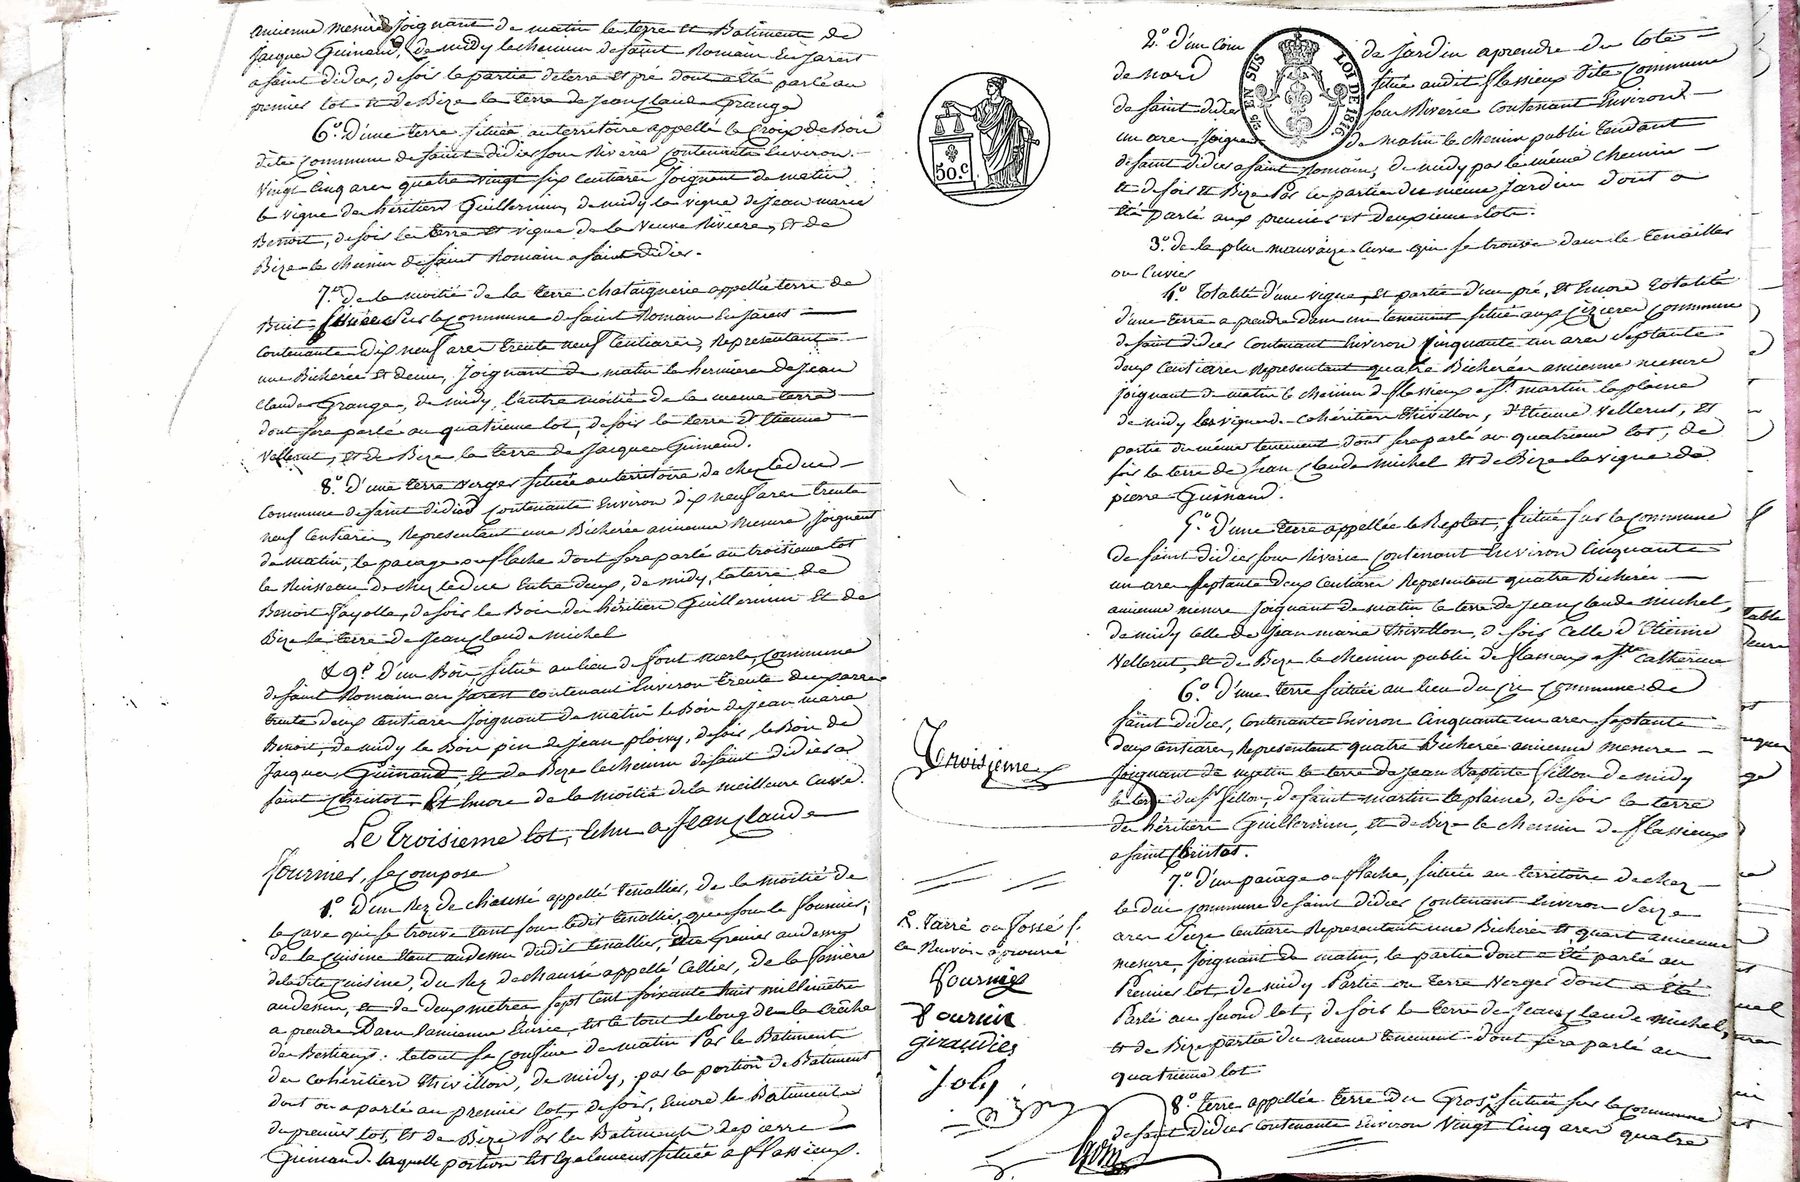 ancienne mesure joignant de matin la terre et Batiments de
Jacques Guinand, de midy le chemin de saint Romain En Jarest
a saint didier, de soir la partie de terre et pré dont a été parlé au
premier lot et de Bize la terre de Jean Claude Grange
6.° d'une terre située au territoire appellé la Croix de Bois
dite Commune de saint didier sous Riverie contenante Environ
Vingt Cinq ares quatre vingt six Centiares joignant de matin
la vigne des héritiers Guillermin, de midy la vigne de Jean marie
Benoit, de soir la terre et vigne de la veuve Rivière, et de
Bize le chemin de saint Romain a saint didier.
7.° de la moitié de la terre chataignerie appellée terre de
Buit située sur la Commune de saint Romain En Jarest
contenante dix neuf ares trente neuf Centiares, Representant
une Bicherée et demie, joignant de matin la hermière de Jean
Claude Grange, de midy l'autre moitié de la meme terre
dont sera parlé au quatrieme lot, de soir la terre d'Etienne
Vellerut, et de Bize la terre de Jacques Guinand.
8.° d'une terre Verger située au territoire de chez leduc
Commune de saint didier Contenante Environ dix neuf ares trente
neuf Centiares, Representant une Bicherée ancienne Mesure joignant
de matin, le pacage ou flache dont sera parlé au troisieme lot
le Ruisseau de chez leduc Entre deux, de midy, la terre de
Benoit fayolle, de soir le Bois des héritiers Guillermin Et de
Bize la terre de Jean Claude michel
& 9.° d'un Bois situé au lieu de font merle, Commune
de saint Romain en Jarest contenant Environ trente deux ares
trente deux Centiares joignant de matin le Bois de Jean marie
Benoit, de midy le Bois pin de Jean ploivy, de soir, le Bois de
Jacques Guinand, et de Bize le chemin de saint didier a
saint Christot. Et Encore de la moitié de la meilleure Cuve.
Le Troisieme lot, Echu a Jean Claude
Fournier, se compose
1.° d'un Rez de chaussé appellé Tenallier, de la moitié de
la cave qui se trouve tant sous ledit tenallier, que sous le fournier,
de la cuisine etant audessus dudit tenallier, du Grenier audessus
de la dite Cuisine, du Rez de chaussé appellé Cellier, de la fanière
audessus, et de deux metres sept cent soixante huit millimètre
a prendre Dans l'ancienne Ecurie, Et le tout le long de la Crèche
des Bestiaux. le tout se Confine de matin Par le Batiment
des cohéritiers Thivillon, de midy, par la portion de Batiment
dont on a parlé au premier lot, de soir, Encore les Batiments
du premier lot, et de Bize Par les Batiments de pierre
Guinand. laquelle portion Est Egalement située a flassieux.
Troisieme
2. tarré ou fossé f.
Fournier
Fournier
giraudier
Joly
50.c
25/c EN SUS LOI DE 1816
2.° d'un Coin de jardin a prendre du coté
de nord situé audit flassieux dite Commune
de saint didier sous Riverie contenant Environ
un are joignant de matin le chemin public tendant
de saint didier a saint Romain, de midy par le même chemin
et de soir et Bize Par la partie du même jardin dont a
Eté parlé aux premier et deuxieme lots.
3.° de la plus mauvaise Cuve qui se trouve dans le Tenailler
ou Cuvier
4.° Totalité d'une vigne, Et partie d'un pré, Et Encore totalité
d'une terre a prendre dans un tenement situé aux Cizieres Commune
de saint didier Contenant Environ Cinquante un ares septante
deux Centiares Representant quatre Bicherées ancienne mesure
joignant de matin le chemin de flassieux a St martin laplaine
de midy les vignes des cohéritiers Thivillon, d'Etienne Vellerut, et
partie du même tenement dont sera parlé au quatrieme lot, de
soir la terre de Jean Claude Michel et de Bize la vigne de
pierre Guinand.
5.° d'une terre appellée le Replat, située sur la Commune
de saint didier sous Riverie contenant Environ Cinquante
un ares septante deux Centiares Representant quatre Bicherées
ancienne mesure joignant de matin la terre de Jean Claude michel,
de midy celle de Jean marie Thivillon, de soir celle d'Etienne
Vellerut, et de Bize le chemin public de flassieux a Ste Catherine
6.° d'une terre située au lieu du cri Commune de
saint didier, Contenante Environ Cinquante un ares septante
deux Centiares, Representant quatre Bicherée ancienne mesure
joignant de matin la terre de Jean Baptiste fillon de midy
la terre du Sr fillon, de saint martin laplaine, de soir la terre
des héritiers Guillermin, et de Bize le chemin de flassieux
a saint Christot.
7.° d'un pacage ou flache, située au territoire de chez
le duc commune de saint didier contenant Environ Seize
ares Seize Centiares Representant une Bicherée et quart ancienne
mesure, joignant de matin, la partie dont a été parlé au
Premier lot, de midy Partie en terre verger dont a été
Parlé au second lot, de soir la terre de Jean Claude michel,
et de Bize partie du même tenement dont sera parlé au
quatrieme lot
8.° Terre appellée terre du Gros, située sur la Commune
de saint didier Contenante Environ Vingt Cinq ares quatre